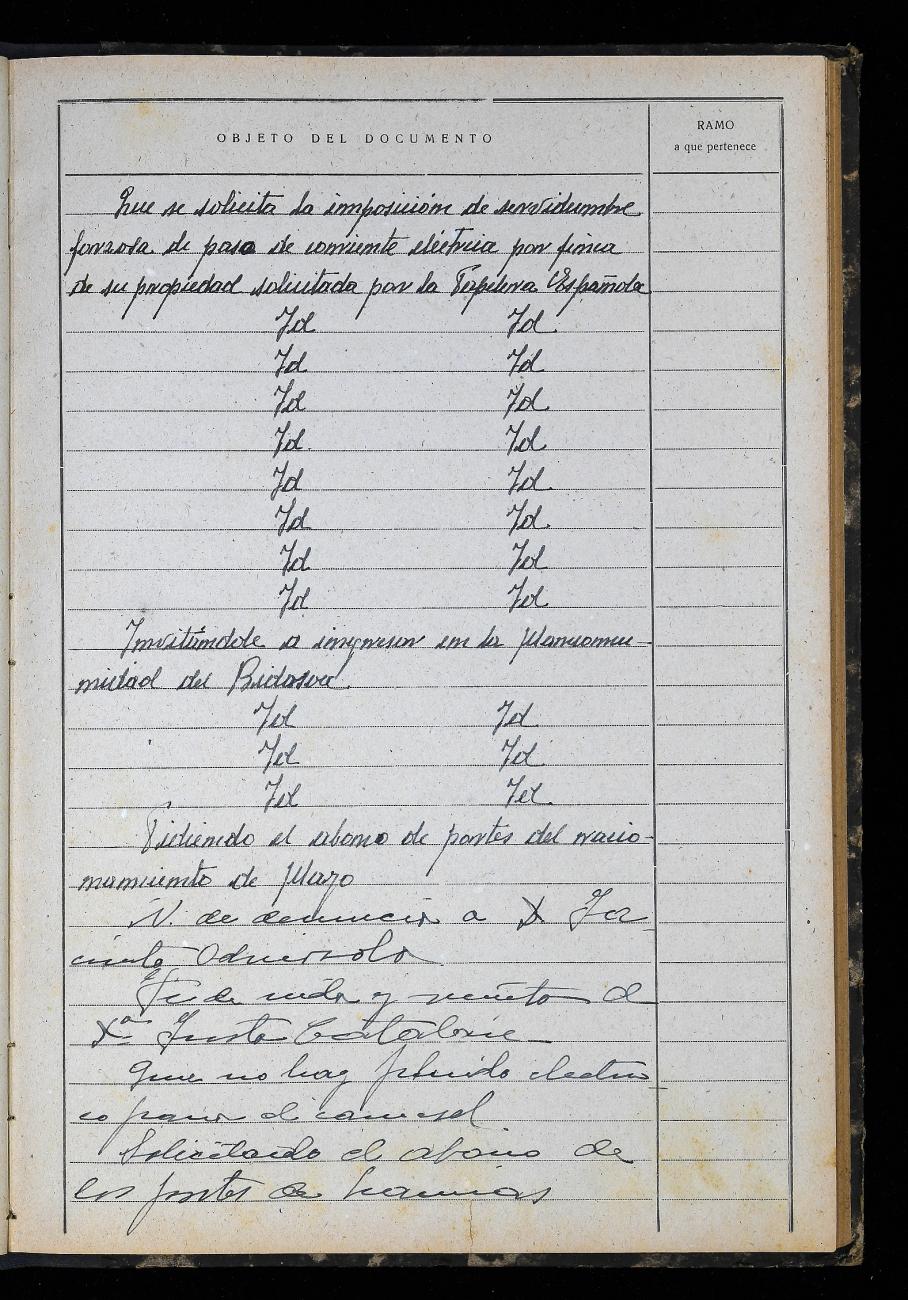 OBJETO DEL DOCUMENTO
RAMO
a que pertenece
Que se solicita la imposición de servidumbre
forzosa de paso de corriente eléctrica por finca
de su propiedad solicitada por la Papelera Española
Id Id
Id Id
Id Id
Id. Id
Id Id.
Id Id.
Id Id
Id Id
Invitándole a ingresar en la Mancomu-
nidad del Bidasoa.
Id Id
Id Id
Id Id
Pidiendo el abono de portes del racio-
namiento de Mayo
N. de denuncia a D. Ja
cinto
Fe de vida y de
Dª Justa
Que no hay fluido electri
co para el carrusel
Solicitando el abono de
los portes de harinas